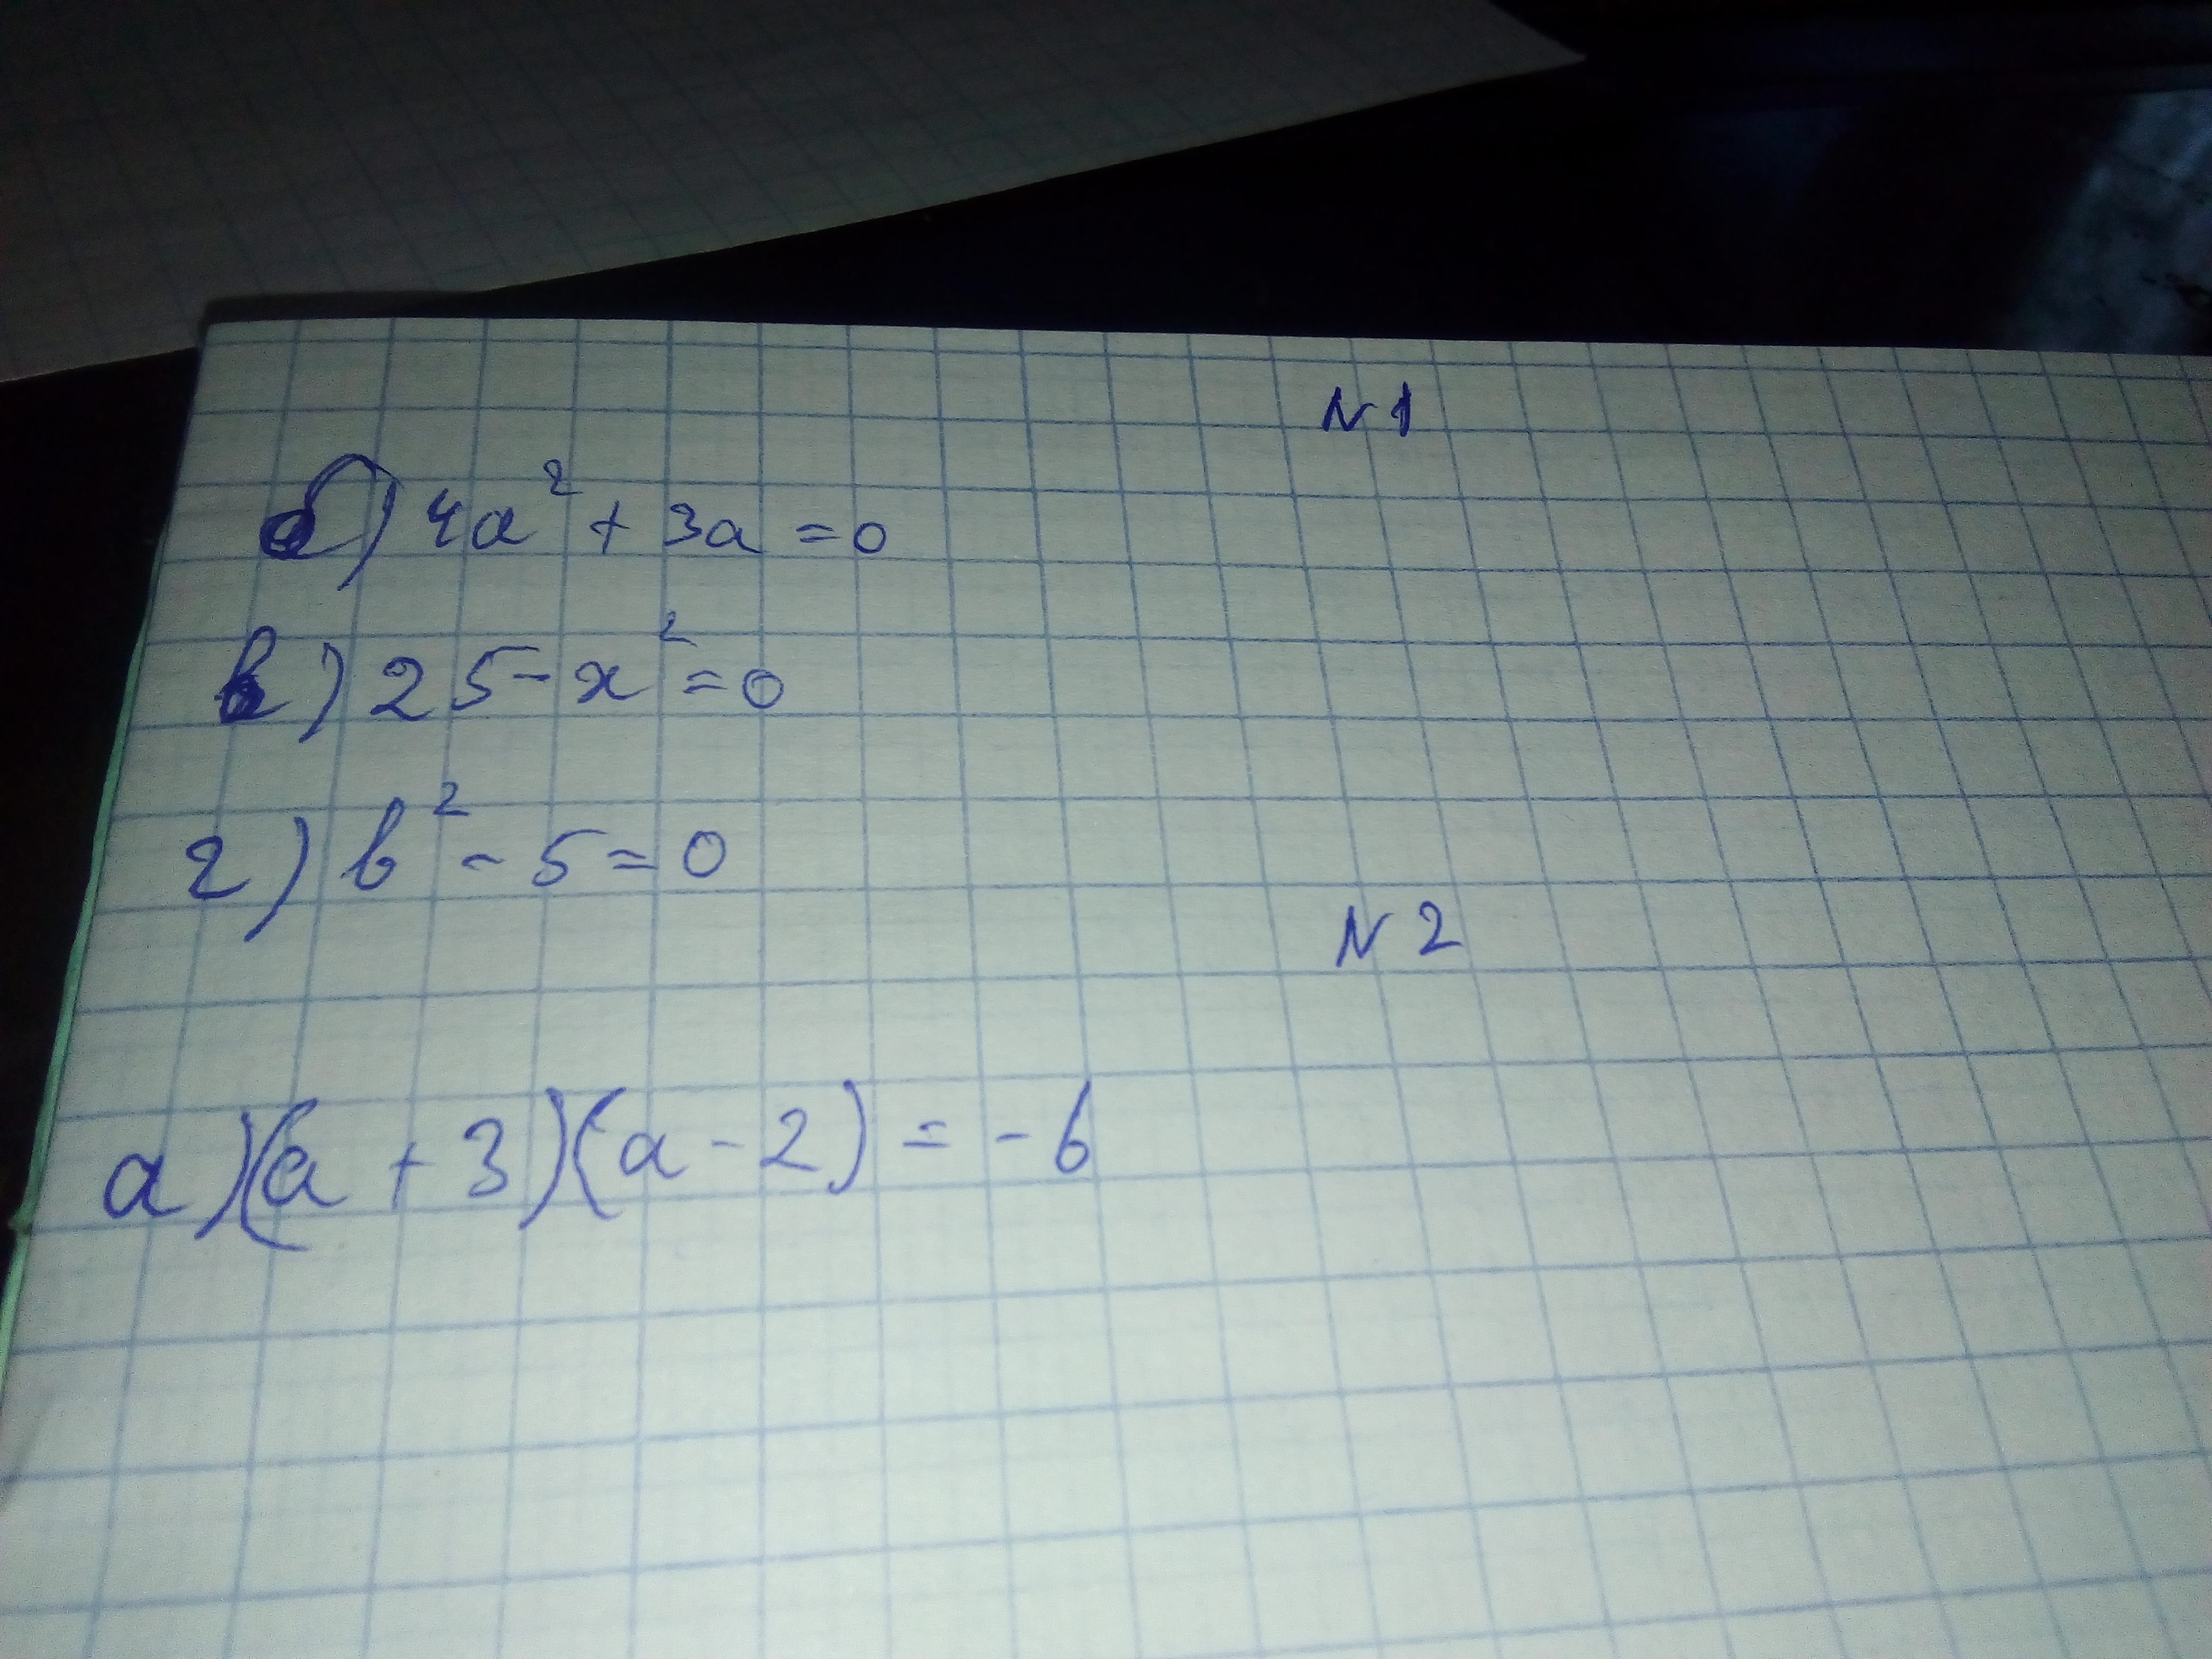 N 1
б) 4a² + 3a = 0
в) 25 - x² = 0
г) b² - 5 = 0
N 2
а) (a + 3)(a - 2) = -6